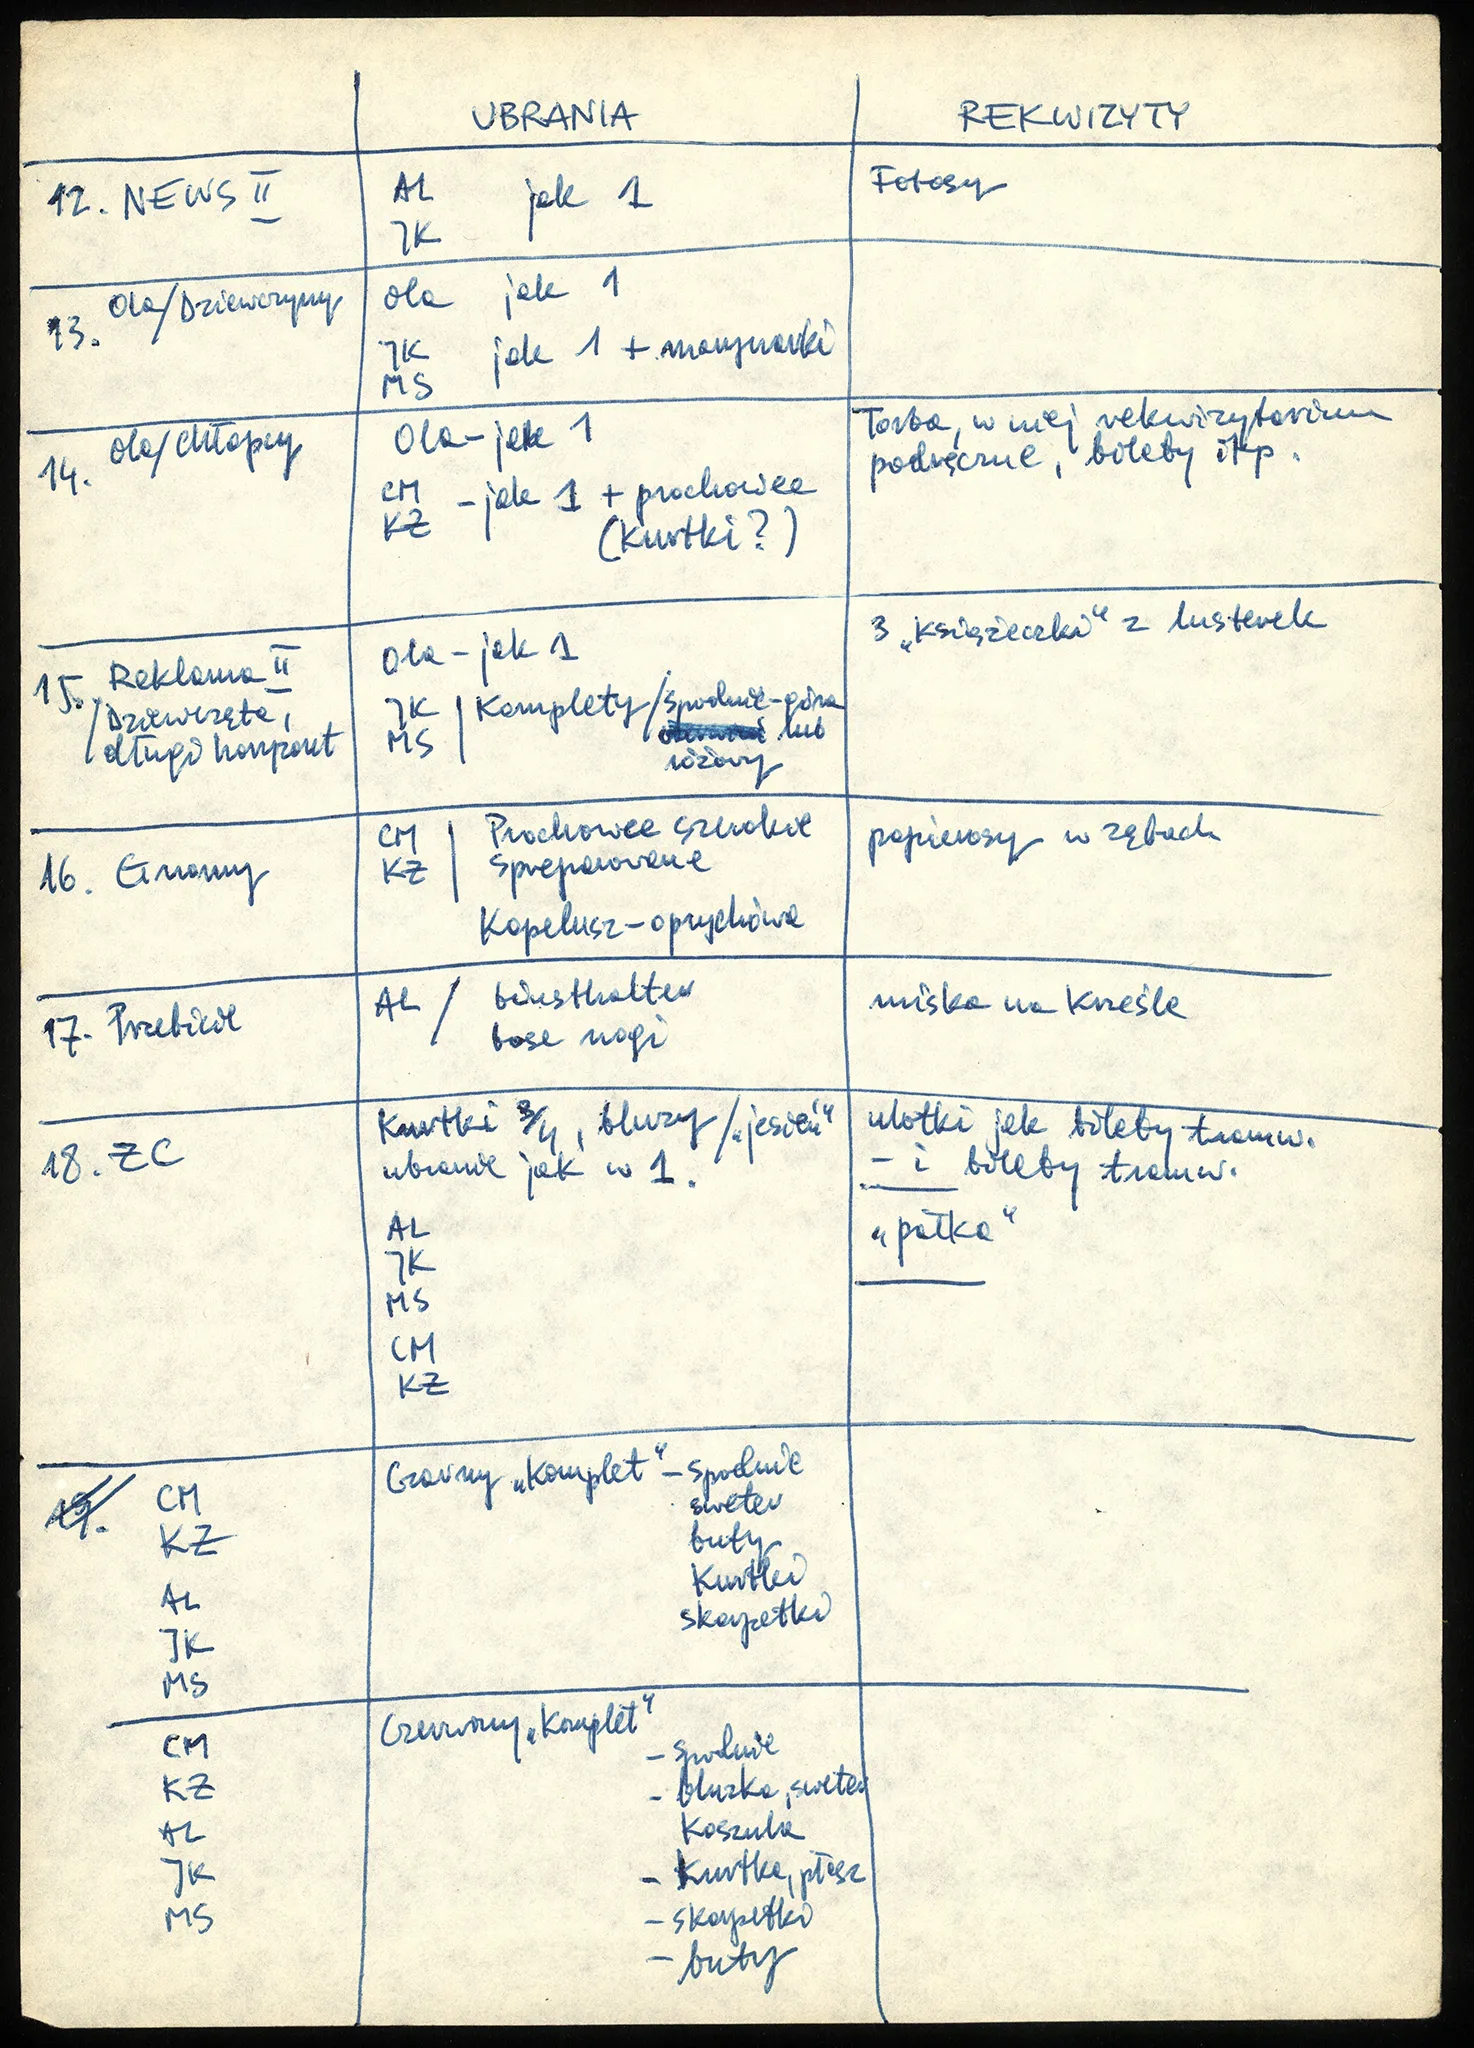 UBRANIA
REKWIZYTY
12. NEWS II
AL
JK
jak 1
Fotosy
13. Ola/Dziewczyny
Ola jak 1
JK
MS
jak 1 + marynarki
14. Ola/chłopcy
Ola - jak 1
CM
KZ
- jak 1 + prochowce
(kurtki?)
Torba, w niej rekwizytorium
podręczne, bilety itp.
15. Reklama II
/Dziewczęta,
długi honpout
Ola - jak 1
JK
MS
Komplety/spodnie-góra
lub
różowy
3 „książeczki" z lusterek
16. Gnomy
CM
KZ
Prochowce szerokie
spreparowane
Kapelusz - oprychówa
papierosy w zębach
17. Przebicie
AL / biusthalter
bose nogi
miska na krześle
18. ŻC
Kurtki 3/4, bluzy/„jesień"
ubranie jak w 1.
AL
JK
MS
CM
KZ
ulotki jak bilety tramw.
- i bilety tramw.
„pałka"
19.
CM
KZ
AL
JK
MS
Czarny „komplet" - spodnie
sweter
buty
kurtki
skarpetki
CM
KZ
AL
JK
MS
Czerwony „komplet"
- spodnie
- bluzka, sweter
koszula
- kurtka, płaszcz
- skarpetki
- buty